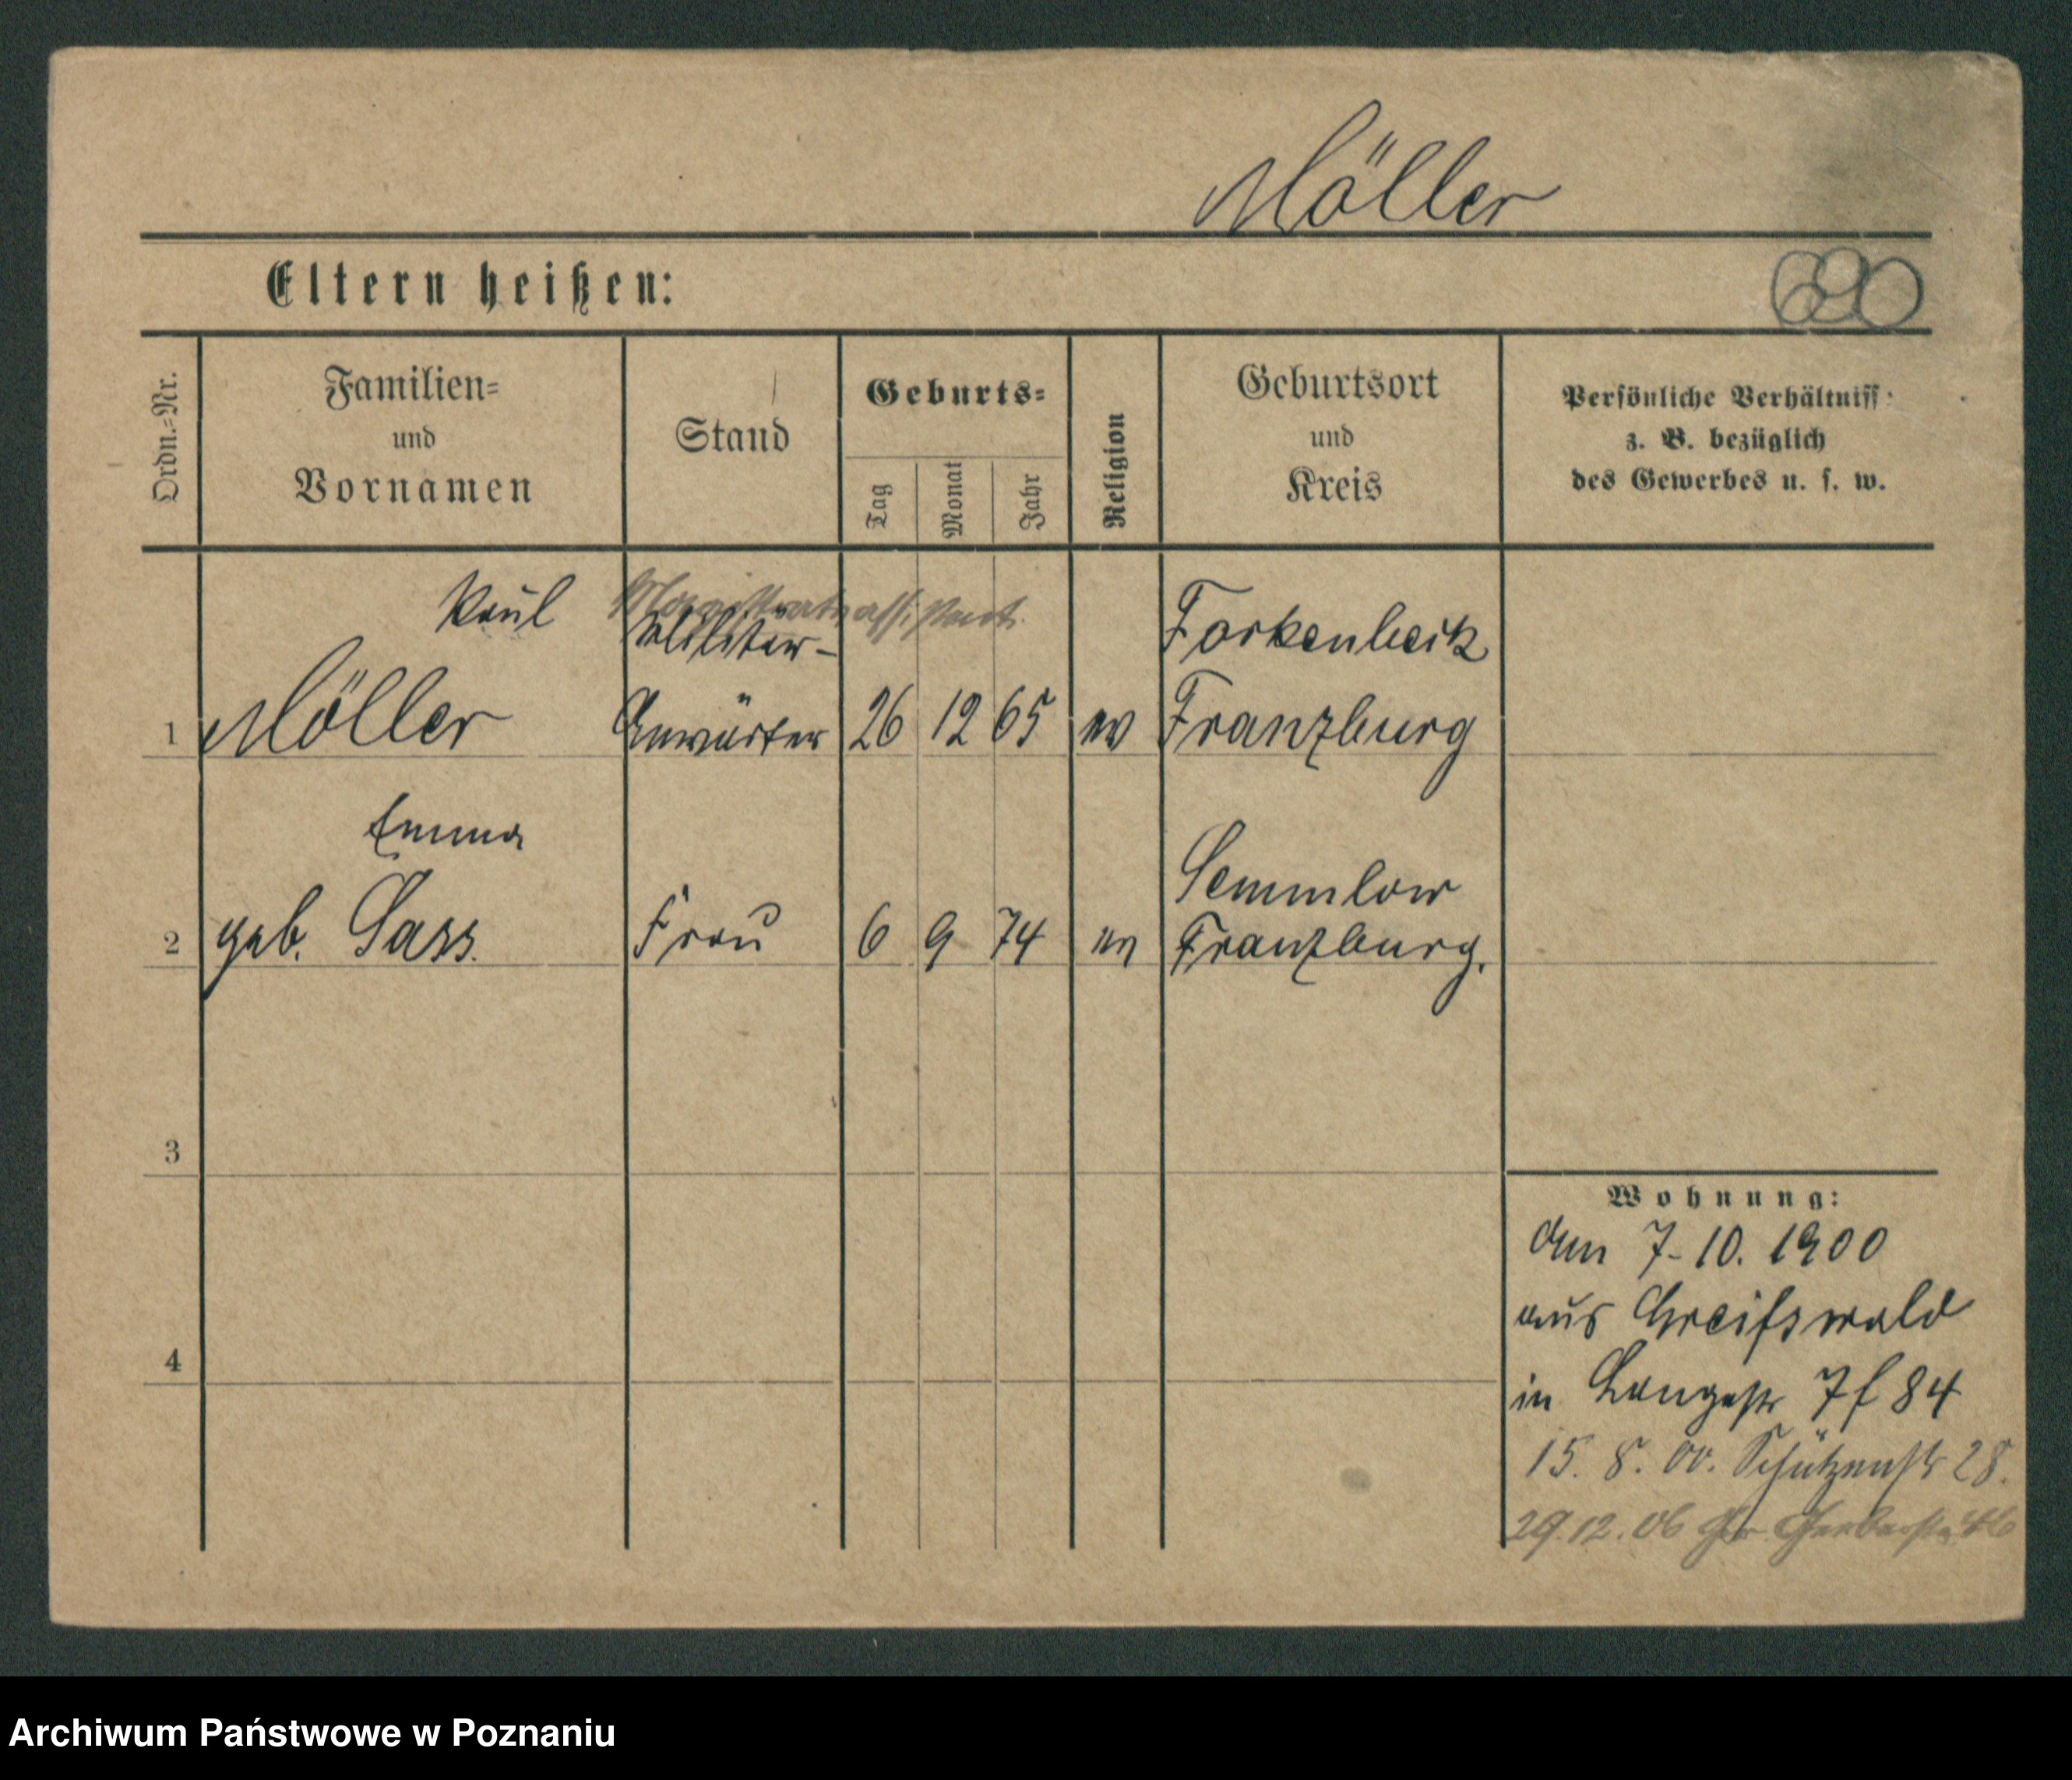 Möller
Eltern heißen:
620
Ordn.=Nr.
Familien=
und
Vornamen
Stand
Geburts=
Tag
Monat
Jahr
Religion
Geburtsort
und
Kreis
Persönliche Verhältniss
z. B. bezüglich
des Gewerbes u. s. w.
Paul
Magistratsassistent
Militär-
Forkenbeck
1 Möller Anwärter 26 12 65 ev Franzburg
Emma
Semmlow
2 geb. Sass. Frau 6 9 74 ev Franzburg.
3
4
Wohnung:
7-10.1900
aus Greifswald
in Langestr 7 84
15. 8. 00. Schützenstr 28.
29.12.06 Gr. Gerberstr
Archiwum Państwowe w Poznaniu